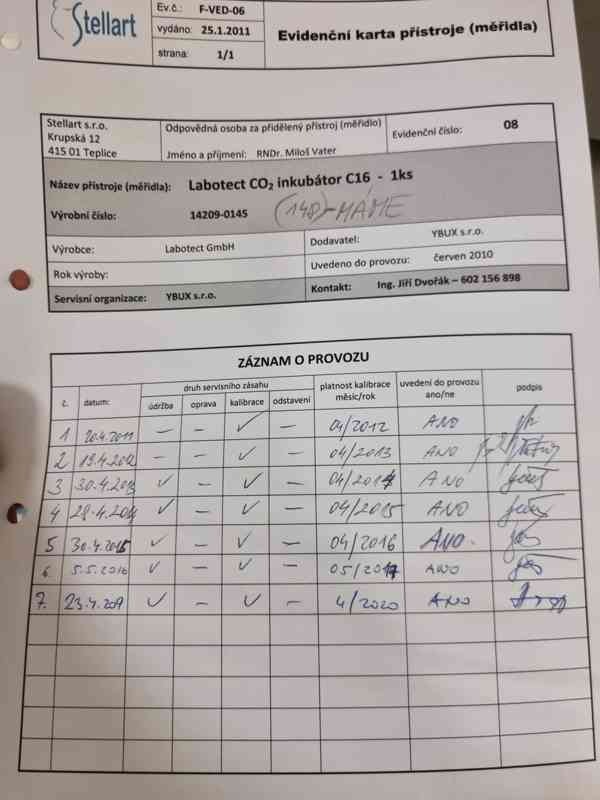 Stellart
Ev.č.: F-VED-06
vydáno: 25.1.2011
strana: 1/1
Evidenční karta přístroje (měřidla)
Stellart s.r.o.
Krupská 12
415 01 Teplice
Odpovědná osoba za přidělený přístroj (měřidlo)
Jméno a příjmení: RNDr. Miloš Vater
Evidenční číslo: 08
Název přístroje (měřidla): Labotect CO₂ inkubátor C16 - 1ks
Výrobní číslo: 14209-0145 (148)-MÁME
Výrobce: Labotect GmbH
Dodavatel: YBUX s.r.o.
Rok výroby:
Uvedeno do provozu: červen 2010
Servisní organizace: YBUX s.r.o.
Kontakt: Ing. Jiří Dvořák – 602 156 898
ZÁZNAM O PROVOZU
č. datum: druh servisního zásahu platnost kalibrace měsíc/rok uvedení do provozu ano/ne podpis
údržba oprava kalibrace odstavení
1 20.4.2011 – – ✓ – 04/2012 ANO
2 19.4.2012 – – ✓ – 04/2013 ANO
3 30.4.2013 ✓ – ✓ – 04/2014 ANO
4 28.4.2014 ✓ – ✓ – 04/2015 ANO
5 30.4.2015 ✓ – ✓ – 04/2016 ANO.
6. 5.5.2016 ✓ – ✓ – 05/2017 ANO
7. 23.4.209 ✓ – ✓ – 4/2020 ANO